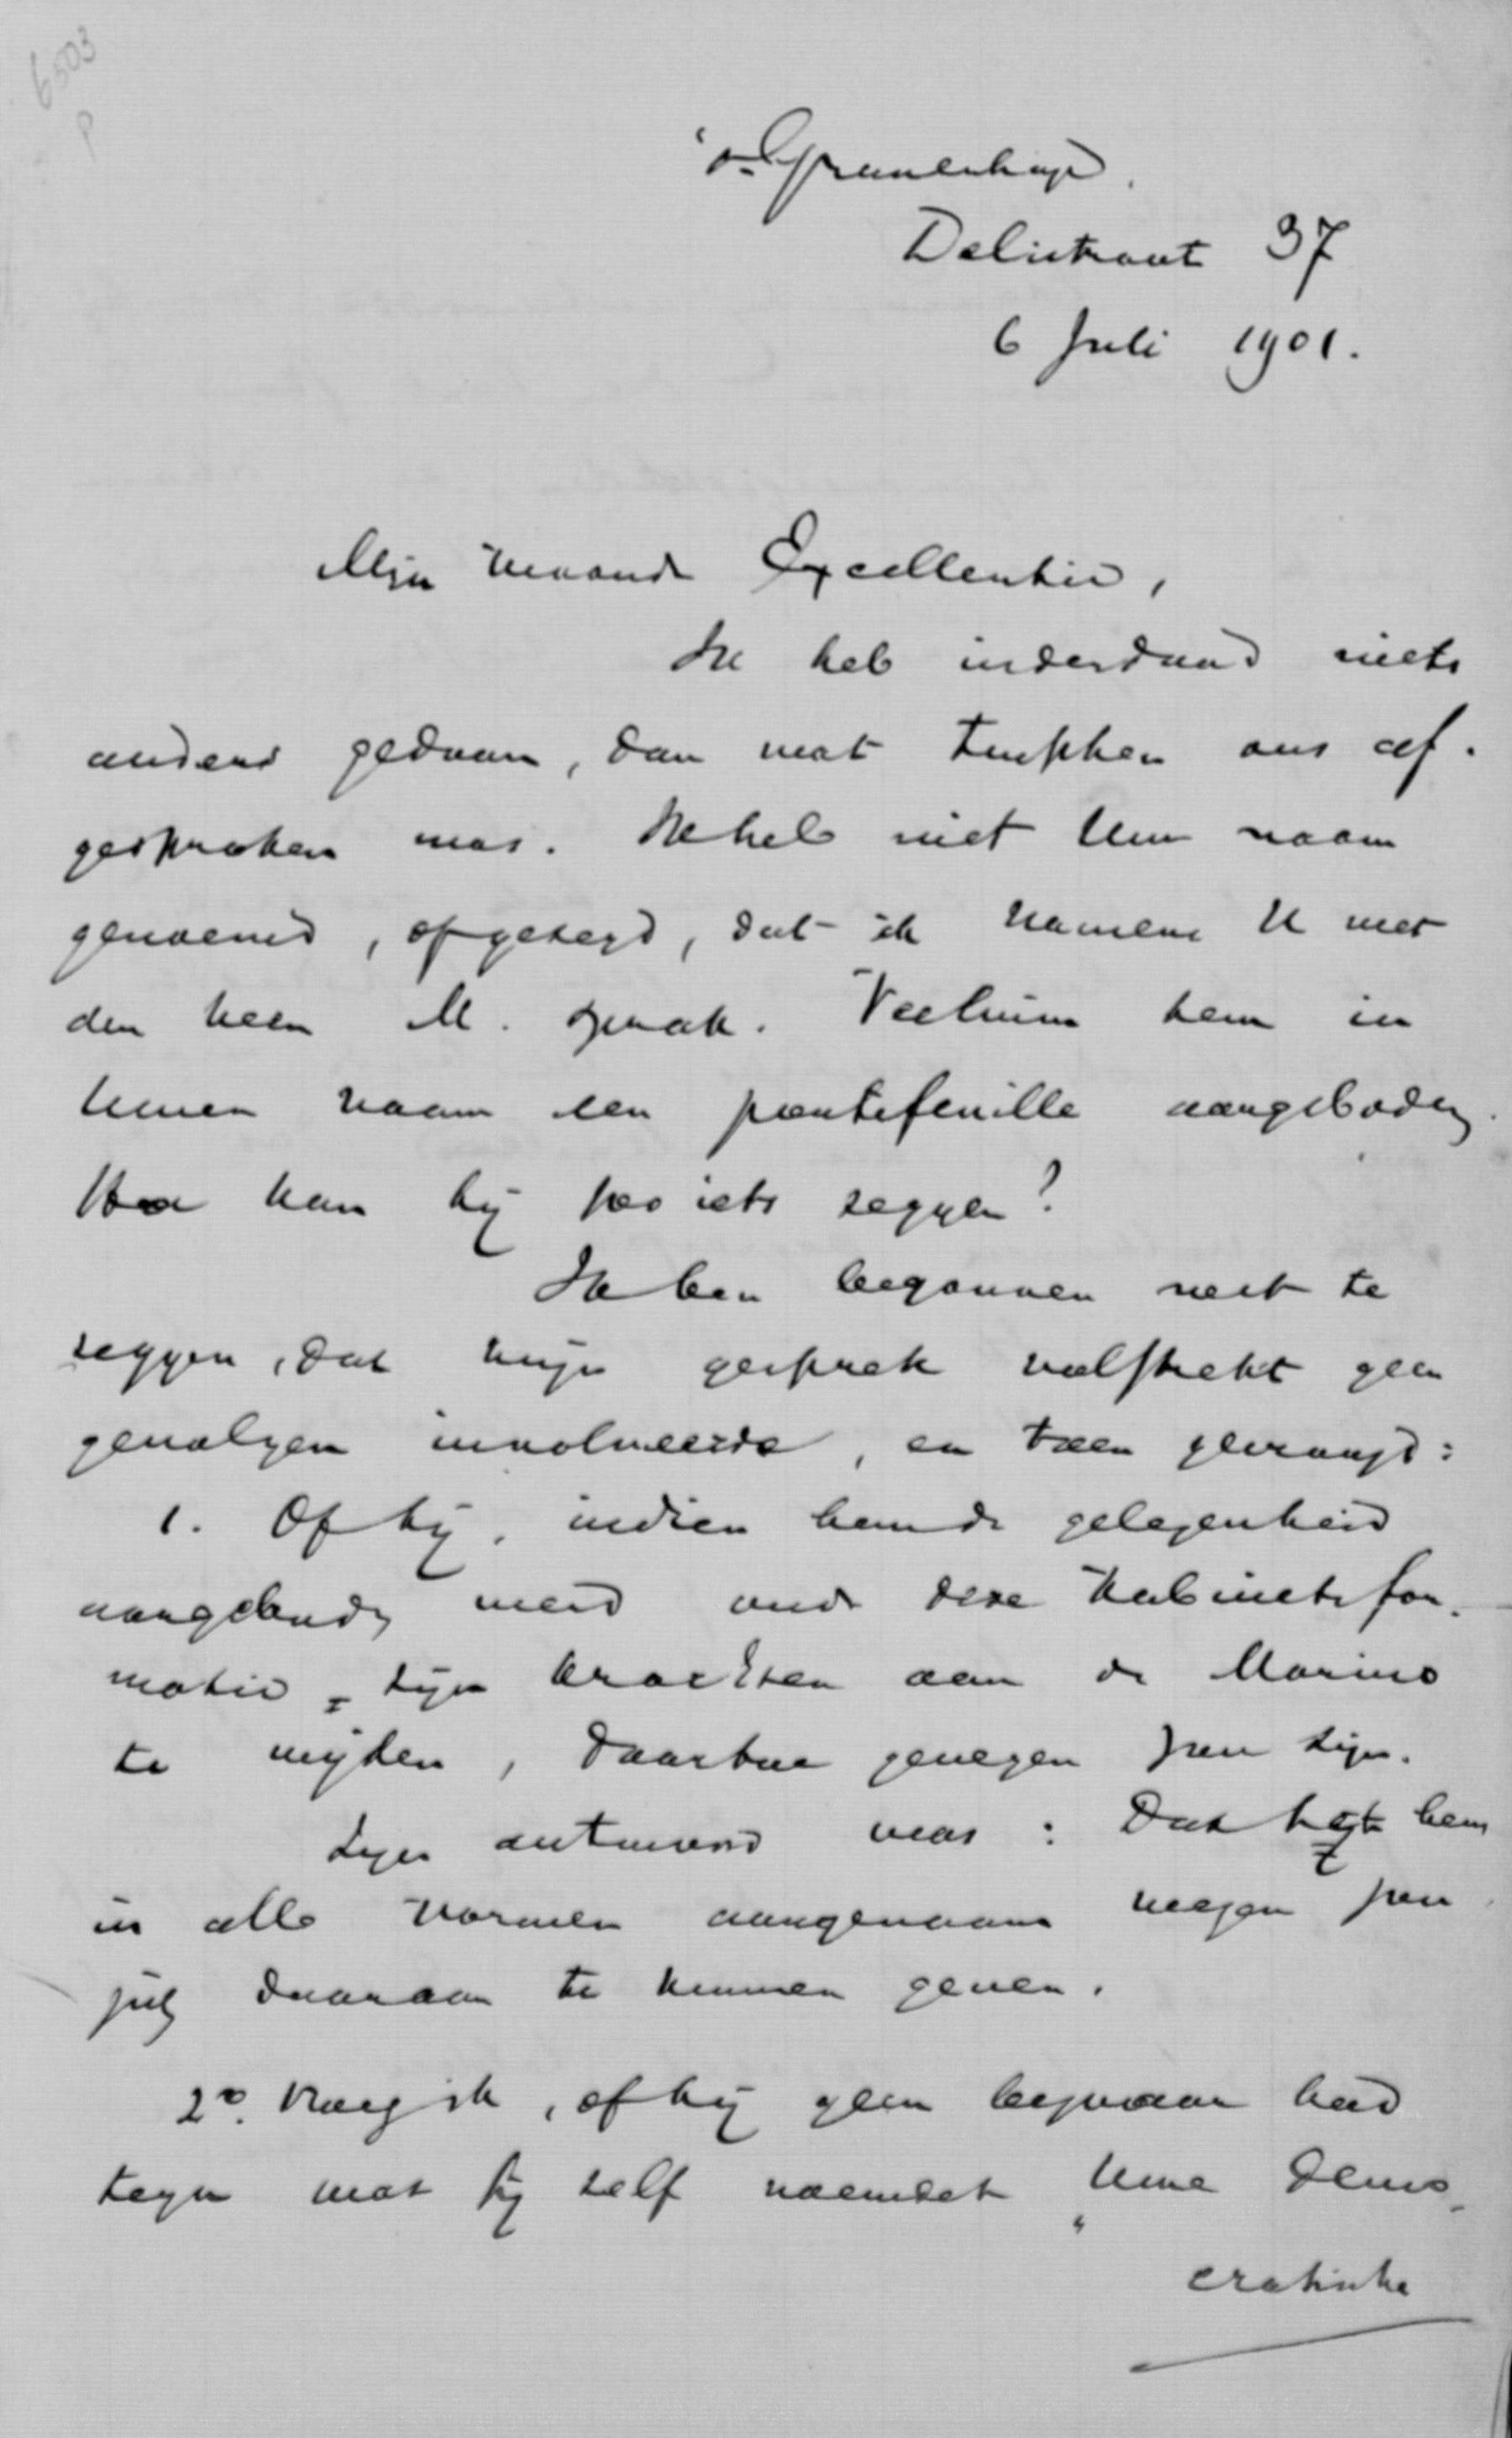 6503
P
's-Gravenhage.
Delistraat 37
6 Juli 1901.
Mijn waarde Excellentie,
Ik heb inderdaad niets
anders gedaan, dan wat tusschen ons af-
gesproken was. Ik heb niet Uw naam
genoemd, of gezegd, dat ik namens U met
den heer M. sprak. Veelmin hem in
Uwen naam een portefeuille aangeboden.
Hoe kan hij zoo iets zeggen?
Ik ben begonnen met te
zeggen, dat mijn gesprek volstrekt geen
gevolgen involveerde, en toen gevraagd:
1. Of hij, indien hem de gelegenheid
aangeboden werd onder deze Kabinetsfor-
matie, zijn krachten aan de Marine
te wijden, daartoe genegen zou zijn.
Zijn antwoord was: Dat het hem
in alle vormen aangenaam wezen zou
zich daaraan te kunnen geven.
2o. Vroeg ik, of hij geen bezwaar had
tegen wat hij zelf noemde „Uwe Demo-
cratische